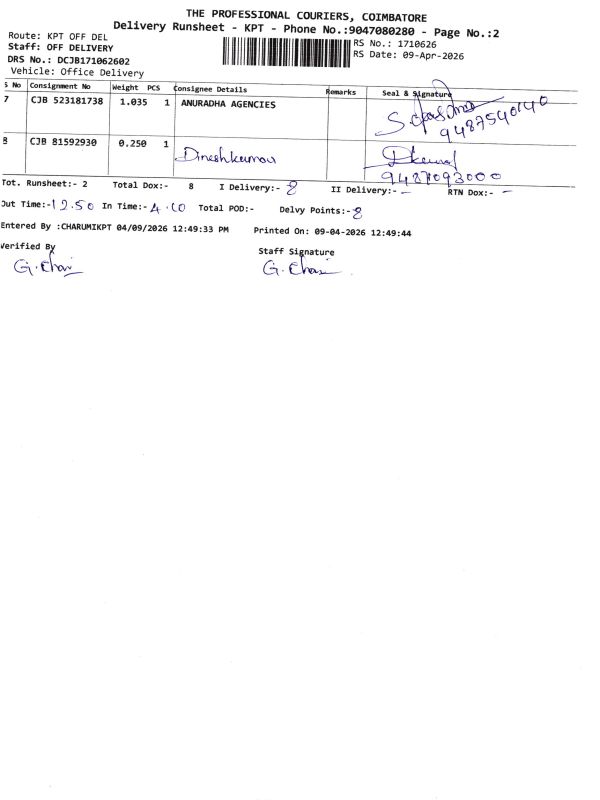 THE PROFESSIONAL COURIERS, COIMBATORE
Delivery Runsheet - KPT - Phone No.:9047080280 - Page No.:2
Route: KPT OFF DEL
RS No.: 1710626
Staff: OFF DELIVERY
RS Date: 09-Apr-2026
DRS No.: DCJB171062602
Vehicle: Office Delivery
S No Consignment No Weight PCS Consignee Details Remarks Seal & Signature
7 CJB 523181738 1.035 1 ANURADHA AGENCIES
9487540140
8 CJB 81592930 0.250 1 Dineshkumar
9487093000
Tot. Runsheet:- 2 Total Dox:- 8 I Delivery:- 8 II Delivery:- - RTN Dox:- -
Out Time:- 12.50 In Time:- 4.10 Total POD:- Delvy Points:- 8
Entered By :CHARUMIKPT 04/09/2026 12:49:33 PM Printed On: 09-04-2026 12:49:44
Verified By Staff Signature